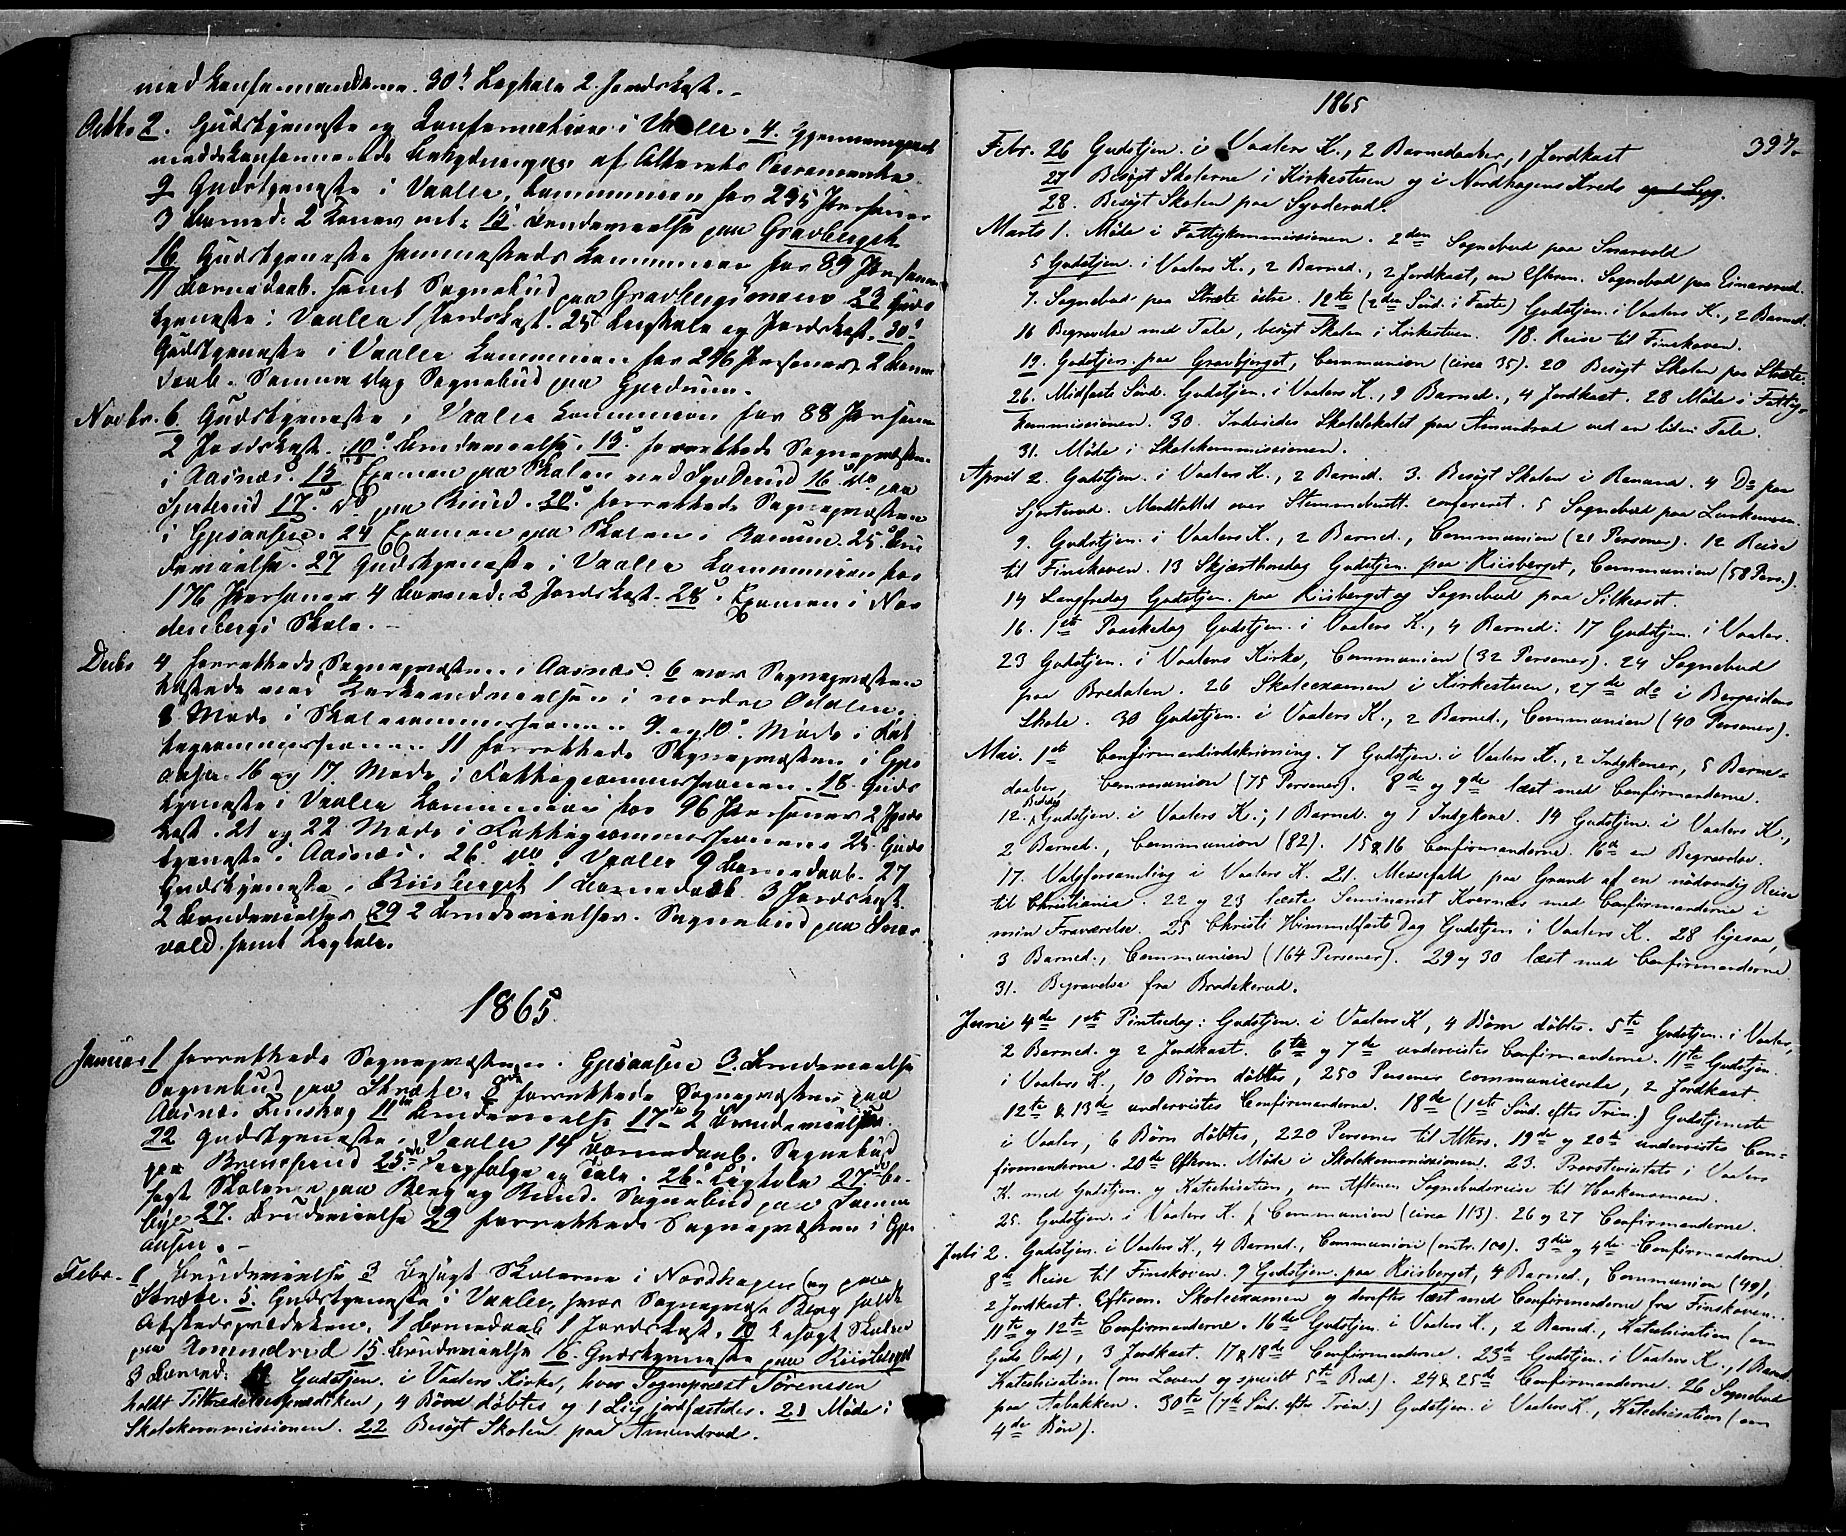 med Confirmanderne. 30 Ligtale 2 Jordkast.
Octbr 2. Gudstjeneste og Confirmation i Vaaler. 4. Gjennemgaaet
med de Confirmerede Betydningen af Alterets Sacramente
9 Gudstjeneste i Vaaler, Communion for 235 Personer
3 Barned. 2 Koner ind. 14 Brudevielse paa Gravberget
16. Gudstjeneste sammesteds Communion for 89 Personer
11 Barnedaab. samt Sognebud paa Gravbergsmoen. 23 Guds
tjeneste i Vaaler 1 Jordkast. 25 Ligtale og Jordkast. 30
Gudstjeneste i Vaaler Communion for 246 Personer 2 Barne
daab. Samme dag Sognebud paa Gjerdrum.
Novbr. 6 Gudstjeneste i Vaaler Communion for 88 Personer
2 Jordkast. 10 Brudevielse. 13. forrettede Sognepræsten
i Aasnæs. 15 Examen paa Skolen ved Syderud 16 do paa
Gjuterud 17. do paa Risud. 20 forrettede Sognepræsten
i Gjesaasen. 24 Examen paa Skolen i Ramun. 25 Bru
devielse. 27 Gudstjeneste i Vaaler Communion for
176 Personer 4 Barned. 2 Jordkast. 28. Examen i Nor
denbergs Skole.
Decbr 4 forrettede Sognepræsten i Aasnæs. 6 var Sognepræsten
tilstede ved Kirkeindvielsen i nordre Odalen.
8 Møde i Skolecommissionen 9. og 10. Møde i Fat
tigcommissionen. 11 forrettede Sognepræsten i Gjes
aasen. 16 og 17 Møde i Fattigcommissionen. 18. Guds
tjeneste i Vaaler Communion for 96 Personer 2 Jord
kast. 21 og 22 Møde i Fattigcommissionen 25. Guds
tjeneste i Aasnæs. 26. do i Vaaler 9 Barnedaab. 27
Gudstjeneste i Riisberget 1 Barnedaab 3 Jordkast
2 Brudevielser 29 2 Brudevielser. Sognebud paa Snar
vold samt Ligtale.
1865
Januar 1 forrettede Sognepræsten i Gjesaasen 3. Brudevielse
Sognebud paa Stræte. 8 forrettede Sognepræsten paa
Aasnæs Finskog 11 Brudevielse 17. 2 Brudevielser.
22 Gudstjeneste i Vaaler 14 Barnedaab. Sognebud
paa 25. og Tale. 26. Ligtale 27 be
søgt Skolerne paa Berg og Risud. Sognebud paa
27. Brudevielse 29 forrettede Sognepræsten i Gjes
aasen.
Febr. 1 Brudevielse 3 besøgt Skolerne i Nordhagen (og paa
Stræte. 5. Gudstjeneste i Vaaler, hvor Sognepræst Berg holdt
Afskedsprædiken. 1 Barnedaab 1 Jordkast. 10 besøgt Skolen
paa Amundrud 15. Brudevielse 16. Gudstjeneste paa Riisberget
3 Barned. 19 Gudstjen. i Vaalers Kirke, hvor Sognepræst Sørensen
holdt Tiltrædelsesprædiken, 4 Børn døbtes og 1 Lig jordfæstedes. 21 Møde i
Skolekommissionen. 22 Besøgt Skolen paa Amundrud.
1865
397.
Febr. 26 Gudstjen. i Vaalers K., 2 Barnedaaber, 1 Jordkast
27 Besøgt Skolerne i Kirkestuen og i Nordhagens Kreds
28. Besøgt Skolen paa Syderud.
Marts 1. Møde i Fattigkommissionen. 2den Sognebud paa Snarvold
5 Gudstjen. i Vaalers K., 2 Barned., 2 Jordkast, en Efterm. Sognebud paa Einarsrud.
7. Sognebud paa Stræte østre. 12te (2den Sønd. i Faste) Gudstjen. i Vaalers K., 2 Barned.
16 Begravelse med Tale, besøgt Skolen i Kirkestuen. 18. Reise til Finskoven.
19. Gudstjen. paa Gravbjerget, Communion (circa 35). 20 Besøgt Skolen paa Stræte.
26. Midfaste Sønd. Gudstjen. i Vaalers K., 9 Barned., 4 Jordkast. 28 Møde i Fattig-
kommissionen. 30. Indviedes Skolelokalet paa Amundrud ved en liden Tale.
31. Møde i Skolekommissionen.
April 2. Gudstjen. i Vaalers K., 2 Barned. 3. Besøgt Skolen i Renaa. 4 Do paa
Gjuterud. Mandtallet over Stemmebrett. confereret. 5 Sognebud paa
9. Gudstjen. i Vaalers K., 2 Barned., Communion (21 Personer). 12 Reise
til Finskoven. 13 Skjærthorsdag Gudstjen. paa Riisberget, Communion (58 Pers.).
14 Langfredag Gudstjen. paa Riisberget og Sognebud paa Silkeoset.
16. 1ste Paaskedag Gudstjen. i Vaalers K., 4 Barned. 17 Gudstjen. i Vaaler.
23 Gudstjen. i Vaalers Kirke, Communion (32 Personer). 24 Sognebud
paa Bredalen. 26 Skoleexamen i Kirkestuen, 27de do i Bergsidens
Skole. 30 Gudstjen. i Vaalers K., 2 Barned., Communion (40 Personer).
Mai. 1ste Confirmandindskrivning. 7 Gudstjen. i Vaalers K., 2 Indgkoner, 5 Barne-
daaber, Communion (75 Personer). 8de og 9de læst med Confirmanderne.
12. Bededag Gudstjen. i Vaalers K., 1 Barned. og 1 Indgkone. 14 Gudstjen. i Vaalers K.,
2 Barned., Communion (82). 15 & 16 Confirmanderne. 16de en Begravelse.
17. Valgforsamling i Vaalers K. 21. Messefald paa Grund af en nødvendig Reise
til Christiania. 22 og 23 læste Seminarist Kværnæs med Confirmanderne i
min Fraværelse. 25 Christi Himmelfarts Dag Gudstjen. i Vaalers K. 28 ligesaa,
3 Barned., Communion (164 Personer). 29 og 30 læst med Confirmanderne
31. Begravelse fra Brodskerud.
Juni 4de 1ste Pintsedag: Gudstjen. i Vaalers K, 4 Børn døbtes. 5te Gudstjen. i Vaaler,
2 Barned. og 2 Jordkast. 6te og 7de undervistes Confirmanderne. 11te Gudstjen.
i Vaalers K., 10 Børn døbtes, 250 Personer communicerede, 2 Jordkast
12te & 13de undervistes Confirmanderne. 18de (1ste Sønd. efter Trin.) Gudstjeneste
i Vaaler, 6 Børn døbtes, 220 Personer til Alters. 19de og 20de undervistes Con-
firmanderne. 20de Efterm. Møde i Skolekommissionen. 23. Provstevisitats i Vaalers
K. med Gudstjen. og Katechisation, om Aftenen Sognebudsreise til Haakensmoen.
25. Gudstjen. i Vaalers K. Communion (circa 113). 26 og 27 Confirmanderne.
Juli 2. Gudstjen. i Vaalers K., 4 Barned., Communion (omtr. 100). 3die og 4de Confirmanderne.
8de Reise til Finskoven. 9 Gudstjen. paa Riisberget, 4 Barned., Communion (49),
2 Jordkast. Efterm. Skoleexamen og derefter læst med Confirmanderne fra Finskoven.
11te og 12te Confirmanderne. 16de Gudstjen. i Vaalers K., 2 Barned., Katechisation (om
Guds Ord), 3 Jordkast. 17 & 18de Confirmanderne. 23de Gudstjen. i Vaalers K., 1 Barned.
Katechisation (om Loven og specielt 5te Bud). 24 & 25de Confirmanderne. 26 Sognebud
paa Aabakken. 30te (7de Sønd. efter Trin.) Gudstjen. i Vaalers K., Katechisation (om
4de Bøn).